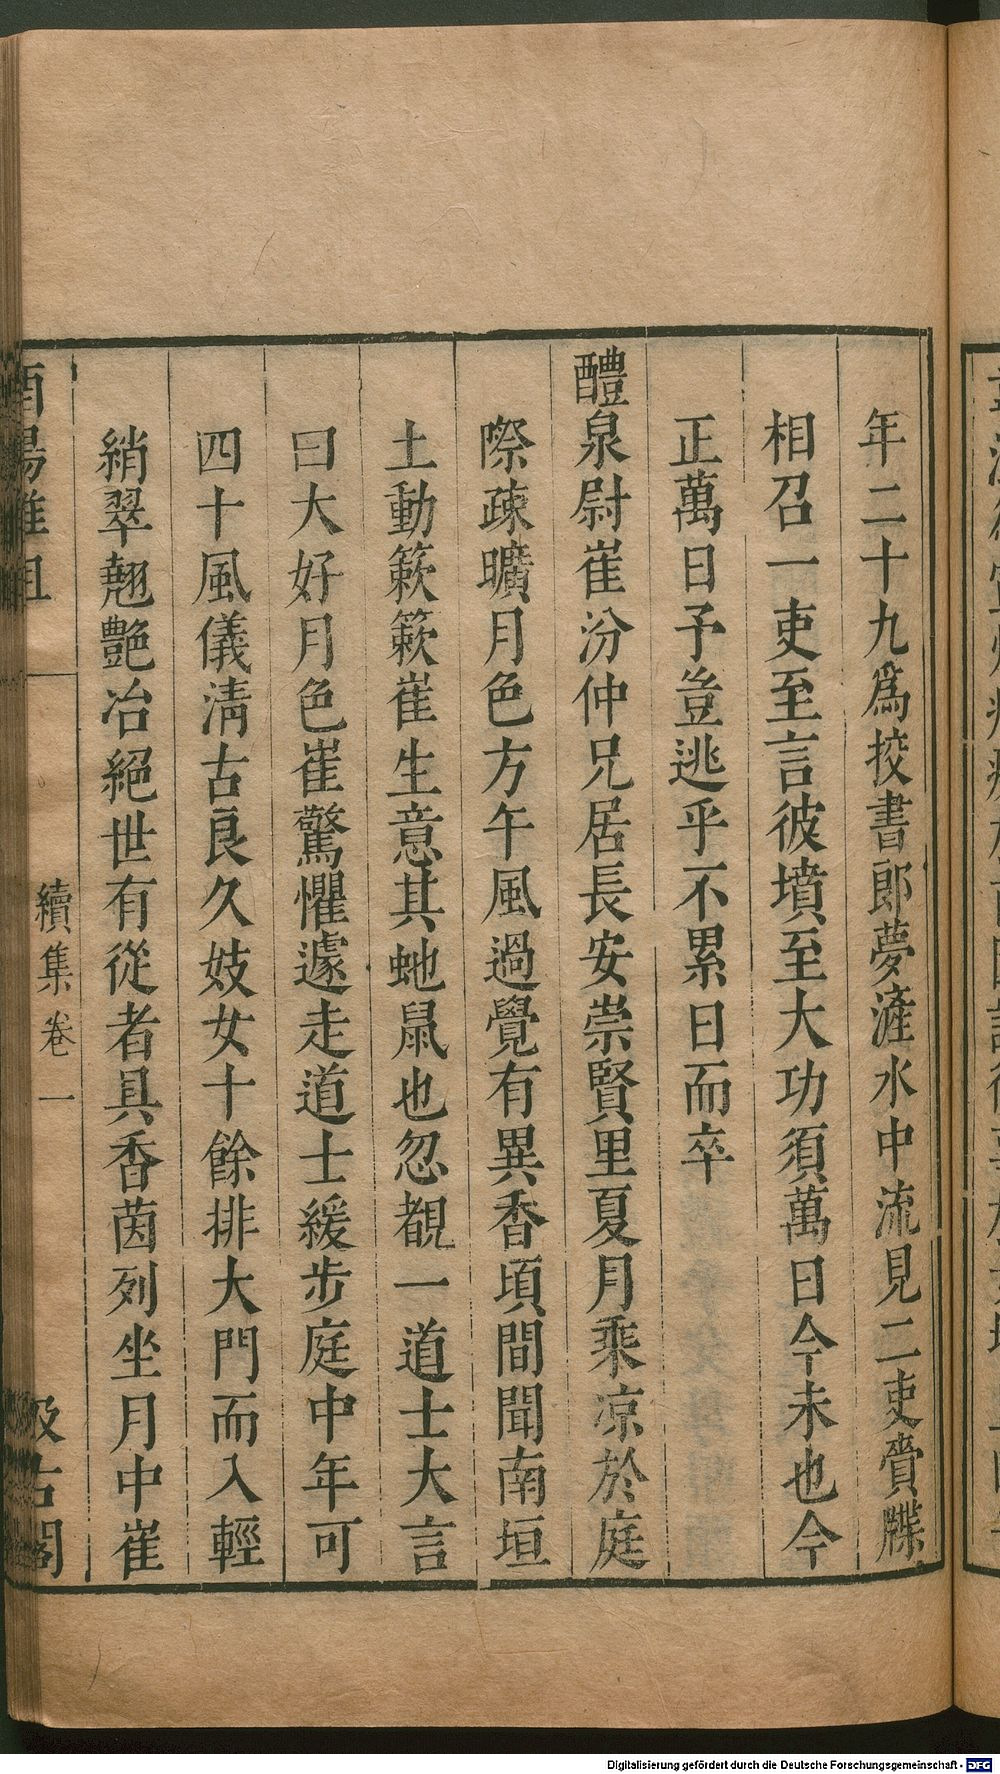 年二十九為挍書郎夢滻水中流見二吏賫牒
相召一吏至言彼墳至大功須萬日今未也今
正萬日予豈逃乎不累日而卒
醴泉尉崔汾仲兄居長安崇賢里夏月乘凉於庭
際疎曠月色方午風過覺有異香頃間聞南垣
土動簌簌崔生意其虵鼠也忽覩一道士大言
曰大好月色崔驚懼遽走道士緩步庭中年可
四十風儀清古良久妓女十餘排大門而入輕
綃翠翹艷冶絕世有從者具香茵列坐月中崔
酉陽雜俎
續集卷一
汲古閣
Digitalisierung gefördert durch die Deutsche Forschungsgemeinschaft - DFG